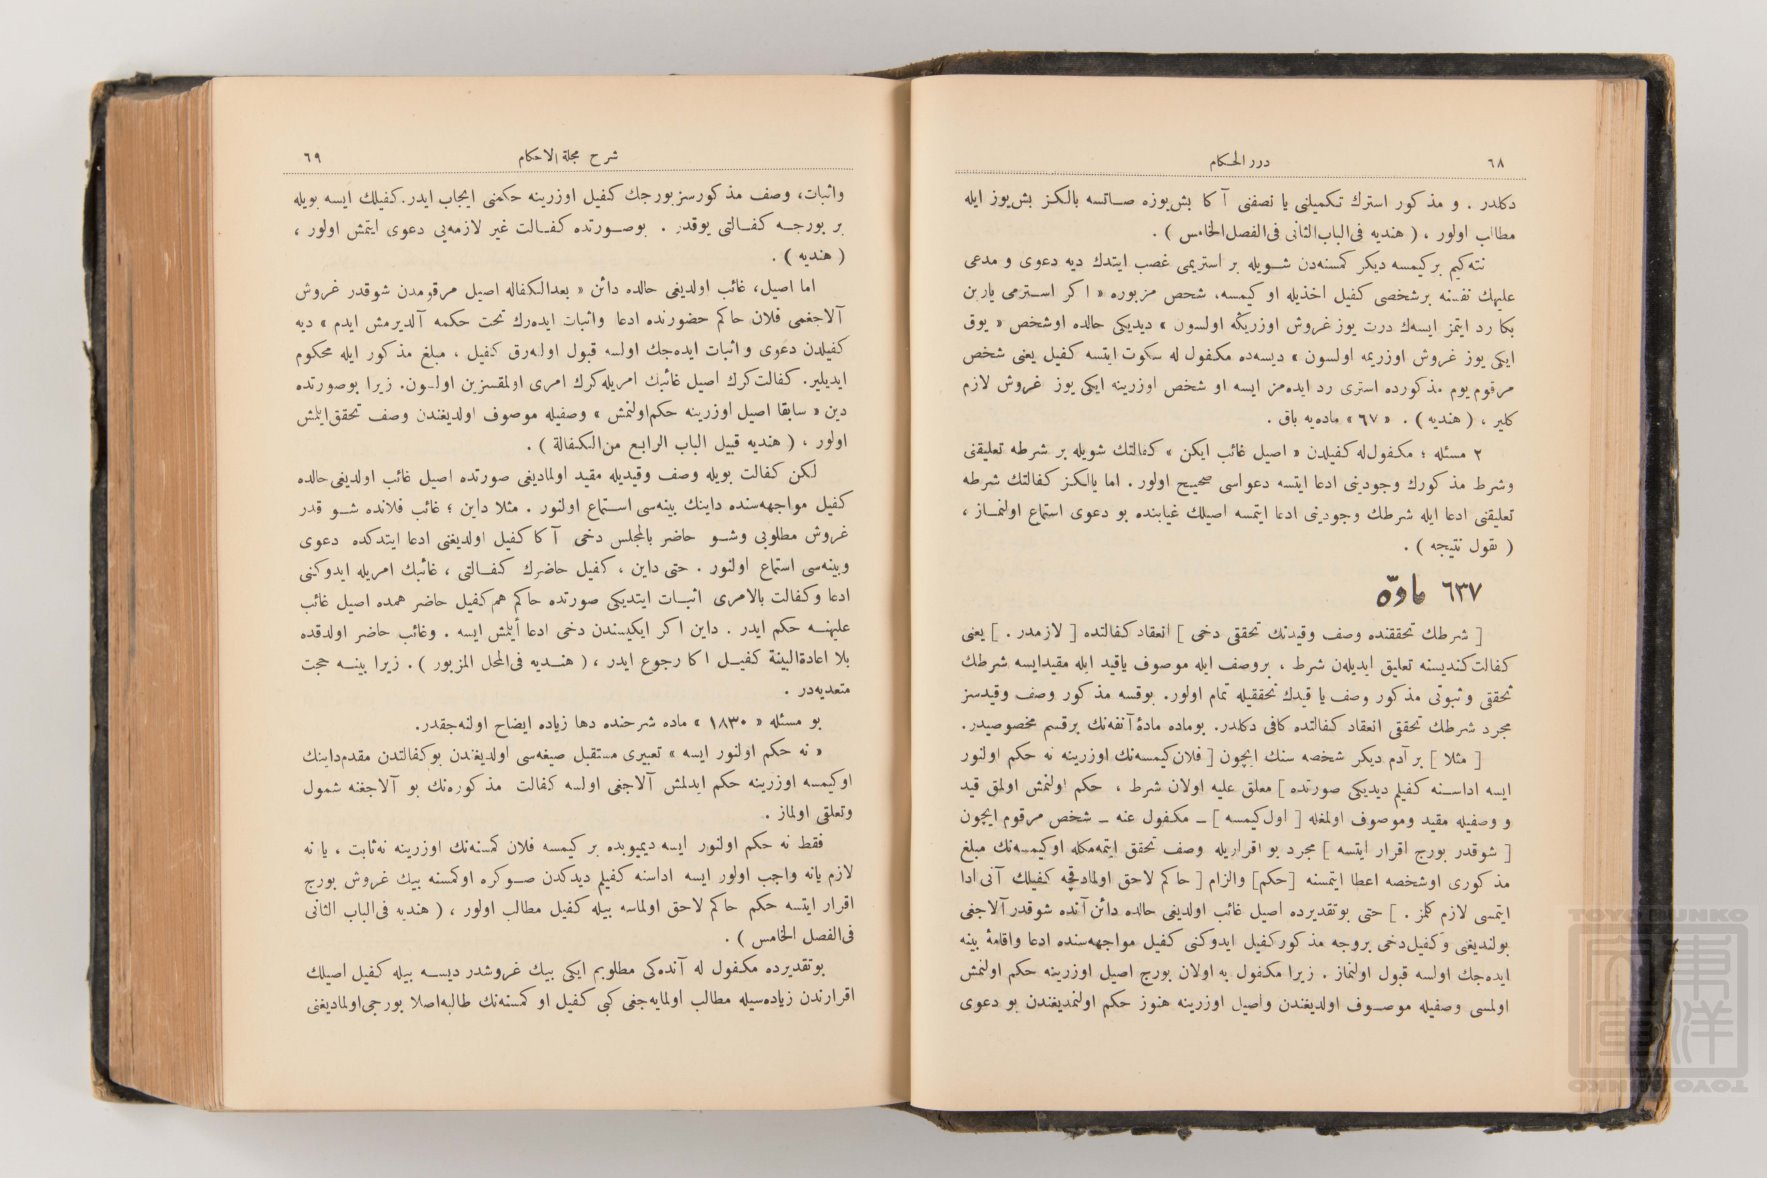 ٦٨
درر الحكام
دكلدر . و مذكور استرك تكميلنى يا نصفنى آكا بش يوزه صاتسه يالكز بش يوز ايله
مطالب اولور ، ( هنديه فى الباب الثانى فى الفصل الخامس ) .
نته كيم بر كيمسه ديكر كمسنه دن شويله بر استريمى غصب ايتدك ديه دعوى و مدعى
عليهك نفسنه بر شخصى كفيل اخذيله او كيمسه، شخص مزبوره « اكر استرمى يارين
بكا رد ايتمز ايسه ك درت يوز غروش اوزريكه اولسون » ديديكى حالده او شخص « يوق
ايكى يوز غروش اوزريمه اولسون » ديسه ده مكفول له سكوت ايتسه كفيل يعنى شخص
مرقوم يوم مذكورده استرى رد ايده مز ايسه او شخص اوزرينه ايكى يوز غروش لازم
كلير ، ( هنديه ) . « ٦٧ » ماده يه باق .
٢ مسئله ؛ مكفول له كفيلدن « اصيل غائب ايكن » كفالتك شويله بر شرطه تعليقنى
وشرط مذكورك وجودينى ادعا ايتسه دعواسى صحيح اولور . اما يالكز كفالتك شرطه
تعليقنى ادعا ايله شرطك وجودينى ادعا ايتمسه اصيلك غيابنده بو دعوى استماع اولنماز ،
( نقول نتيجه ) .
٦٣٧ مادّه
[ شرطك تحققنده وصف وقيدنك تحققى دخى ] انعقاد كفالتده [ لازمدر . ] يعنى
كفالت كنديسنه تعليق ايديلهن شرط ، بر وصف ايله موصوف ياقيد ايله مقيد ايسه شرطك
تحققى وثبوتى مذكور وصف يا قيدك تحققيله تمام اولور. يوقسه مذكور وصف وقيدسز
مجرد شرطك تحققى انعقاد كفالتده كافى دكلدر. بو ماده مادۀ آنفه نك بر قسم مخصوصيدر.
[ مثلا ] بر آدم ديكر شخصه سنك ايچون [ فلان كيمسه نك اوزرينه نه حكم اولنور
ايسه اداسنه كفيلم ديديكى صورتده ] معلق عليه اولان شرط ، حكم اولنمش اولمق قيد
و وصفيله مقيد وموصوف اولمغله [ اول كيمسه ] ـ مكفول عنه ـ شخص مرقوم ايچون
[ شوقدر بورج اقرار ايتسه ] مجرد بو اقراريله وصف تحقق ايتمه مكله او كيمسه نك مبلغ
مذكورى او شخصه اعطا ايتمسنه [حكم] والزام [ حاكم لاحق اولمادقجه كفيلك آنى ادا
ايتمسى لازم كلمز . ] حتى بو تقديرده اصيل غائب اولديغى حالده دائن آنده شوقدر آلاجغى
بولنديغى وكفيل دخى بروجه مذكور كفيل ايدوكنى كفيل مواجهه سنده ادعا واقامۀ بينه
ايده جك اولسه قبول اولنماز . زيرا مكفول به اولان بورج اصيل اوزرينه حكم اولنمش
اولمسى وصفيله موصوف اولديغندن واصيل اوزرينه هنوز حكم اولنمديغندن بو دعوى
٦٩
شرح مجلة الاحكام
واثبات، وصف مذكورسز بورجك كفيل اوزرينه حكمنى ايجاب ايدر. كفيلك ايسه بويله
بر بورجه كفالتى يوقدر . بو صورتده كفالت غير لازمه يى دعوى ايتمش اولور ،
( هنديه ) .
اما اصيل، غائب اولديغى حالده دائن « بعد الكفاله اصيل مرقومدن شوقدر غروش
آلاجغمى فلان حاكم حضورنده ادعا واثبات ايده رك تحت حكمه آلديرمش ايدم » ديه
كفيلدن دعوى و اثبات ايده جك اولسه قبول اولنه رق كفيل ، مبلغ مذكور ايله محكوم
ايديلير. كفالت كرك اصيل غائبك امريله كرك امرى اولمقسزين اولسون. زيرا بو صورتده
دين « سابقا اصيل اوزرينه حكم اولنمش » وصفيله موصوف اولديغندن وصف تحقق ايتمش
اولور ، ( هنديه قبيل الباب الرابع من الكفالة ) .
لكن كفالت بويله وصف وقيديله مقيد اولماديغى صورتده اصيل غائب اولديغى حالده
كفيل مواجهه سنده داينك بينه سى استماع اولنور . مثلا داين ؛ غائب فلانده شو قدر
غروش مطلوبى وشو حاضر بالمجلس دخى آكا كفيل اولديغنى ادعا ايتدكده دعوى
وبينه سى استماع اولنور . حتى داين ، كفيل حاضرك كفالتى ، غائبك امريله ايدوكنى
ادعا وكفالت بالامرى اثبات ايتديكى صورتده حاكم هم كفيل حاضر همده اصيل غائب
عليهنه حكم ايدر . داين اكر ايكيسندن دخى ادعا ايلمش ايسه . وغائب حاضر اولدقده
بلا اعادة البينة كفيل اكا رجوع ايدر ، ( هنديه فى المحل المزبور ) . زيرا بينه حجت
متعديه در .
بو مسئله « ١٨٣٠ » ماده شرحنده دها زياده ايضاح اولنه جقدر.
« نه حكم اولنور ايسه » تعبيرى مستقبل صيغه سى اولديغندن بو كفالتدن مقدم داينك
او كيمسه اوزرينه حكم ايدلمش آلاجغى اولسه كفالت مذكوره نك بو آلاجغنه شمول
وتعلقى اولماز .
فقط نه حكم اولنور ايسه ديميوبده بر كيمسه فلان كمسنه نك اوزرينه نه ثابت ، يا نه
لازم يا نه واجب اولور ايسه اداسنه كفيلم ديدكدن صوكره او كمسنه بيك غروش بورج
اقرار ايتسه حكم حاكم لاحق اولماسه بيله كفيل مطالب اولور ، ( هنديه فى الباب الثانى
فى الفصل الخامس ) .
بو تقديرده مكفول له آنده كى مطلوبم ايكى بيك غروشدر ديسه بيله كفيل اصيلك
اقرارندن زياده سيله مطالب اولمايه جغى كبى كفيل او كمسنه نك طالبه اصلا بورجى اولماديغنى
TOYO BUNKO
東洋文庫
TOYO BUNKO